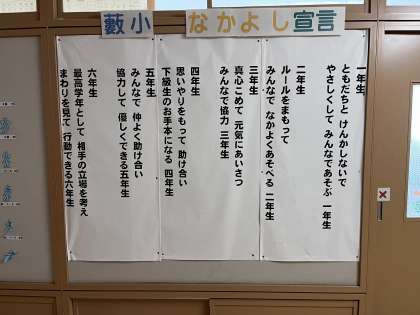 藪小 なかよし宣言
一年生
ともだちと けんかしないで
やさしくして みんなであそぶ 一年生
二年生
ルールをまもって
みんなで なかよくあそべる 二年生
三年生
真心こめて 元気にあいさつ
みんなで協力 三年生
四年生
思いやりをもって 助け合い
下級生のお手本になる 四年生
五年生
みんなで 仲よく助け合い
協力して 優しくできる五年生
六年生
最高学年として 相手の立場を考え
まわりを見て 行動できる六年生